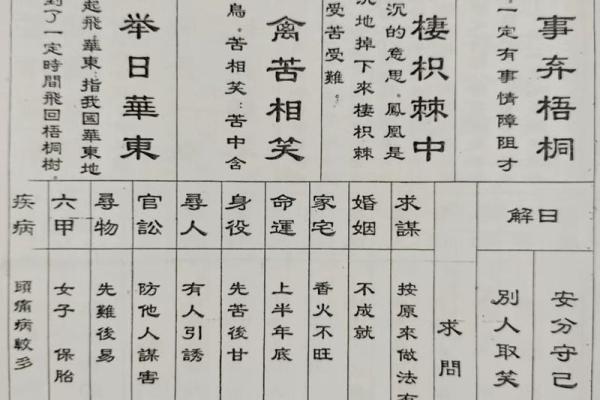 事弃梧桐
一定有事情障阻才
棲枳棘中
沉的意思.鳳凰是
沉地掉下來棲枳棘
受苦受難。
禽苦相笑
鳥。苦相笑:苦中含
举日華東
起飛.華東:指我國華東地
一定時間飛回梧桐樹.
日解
安分守己
別人取笑
求問
求謀
按原來做法
婚姻
不成就
家宅
香火不旺
命運
上半年底
身役
先苦後甘
尋人
有人引誘
官訟
防他人謀害
尋物
先難後易
六甲
女子 保胎
疾病
頭痛病較多